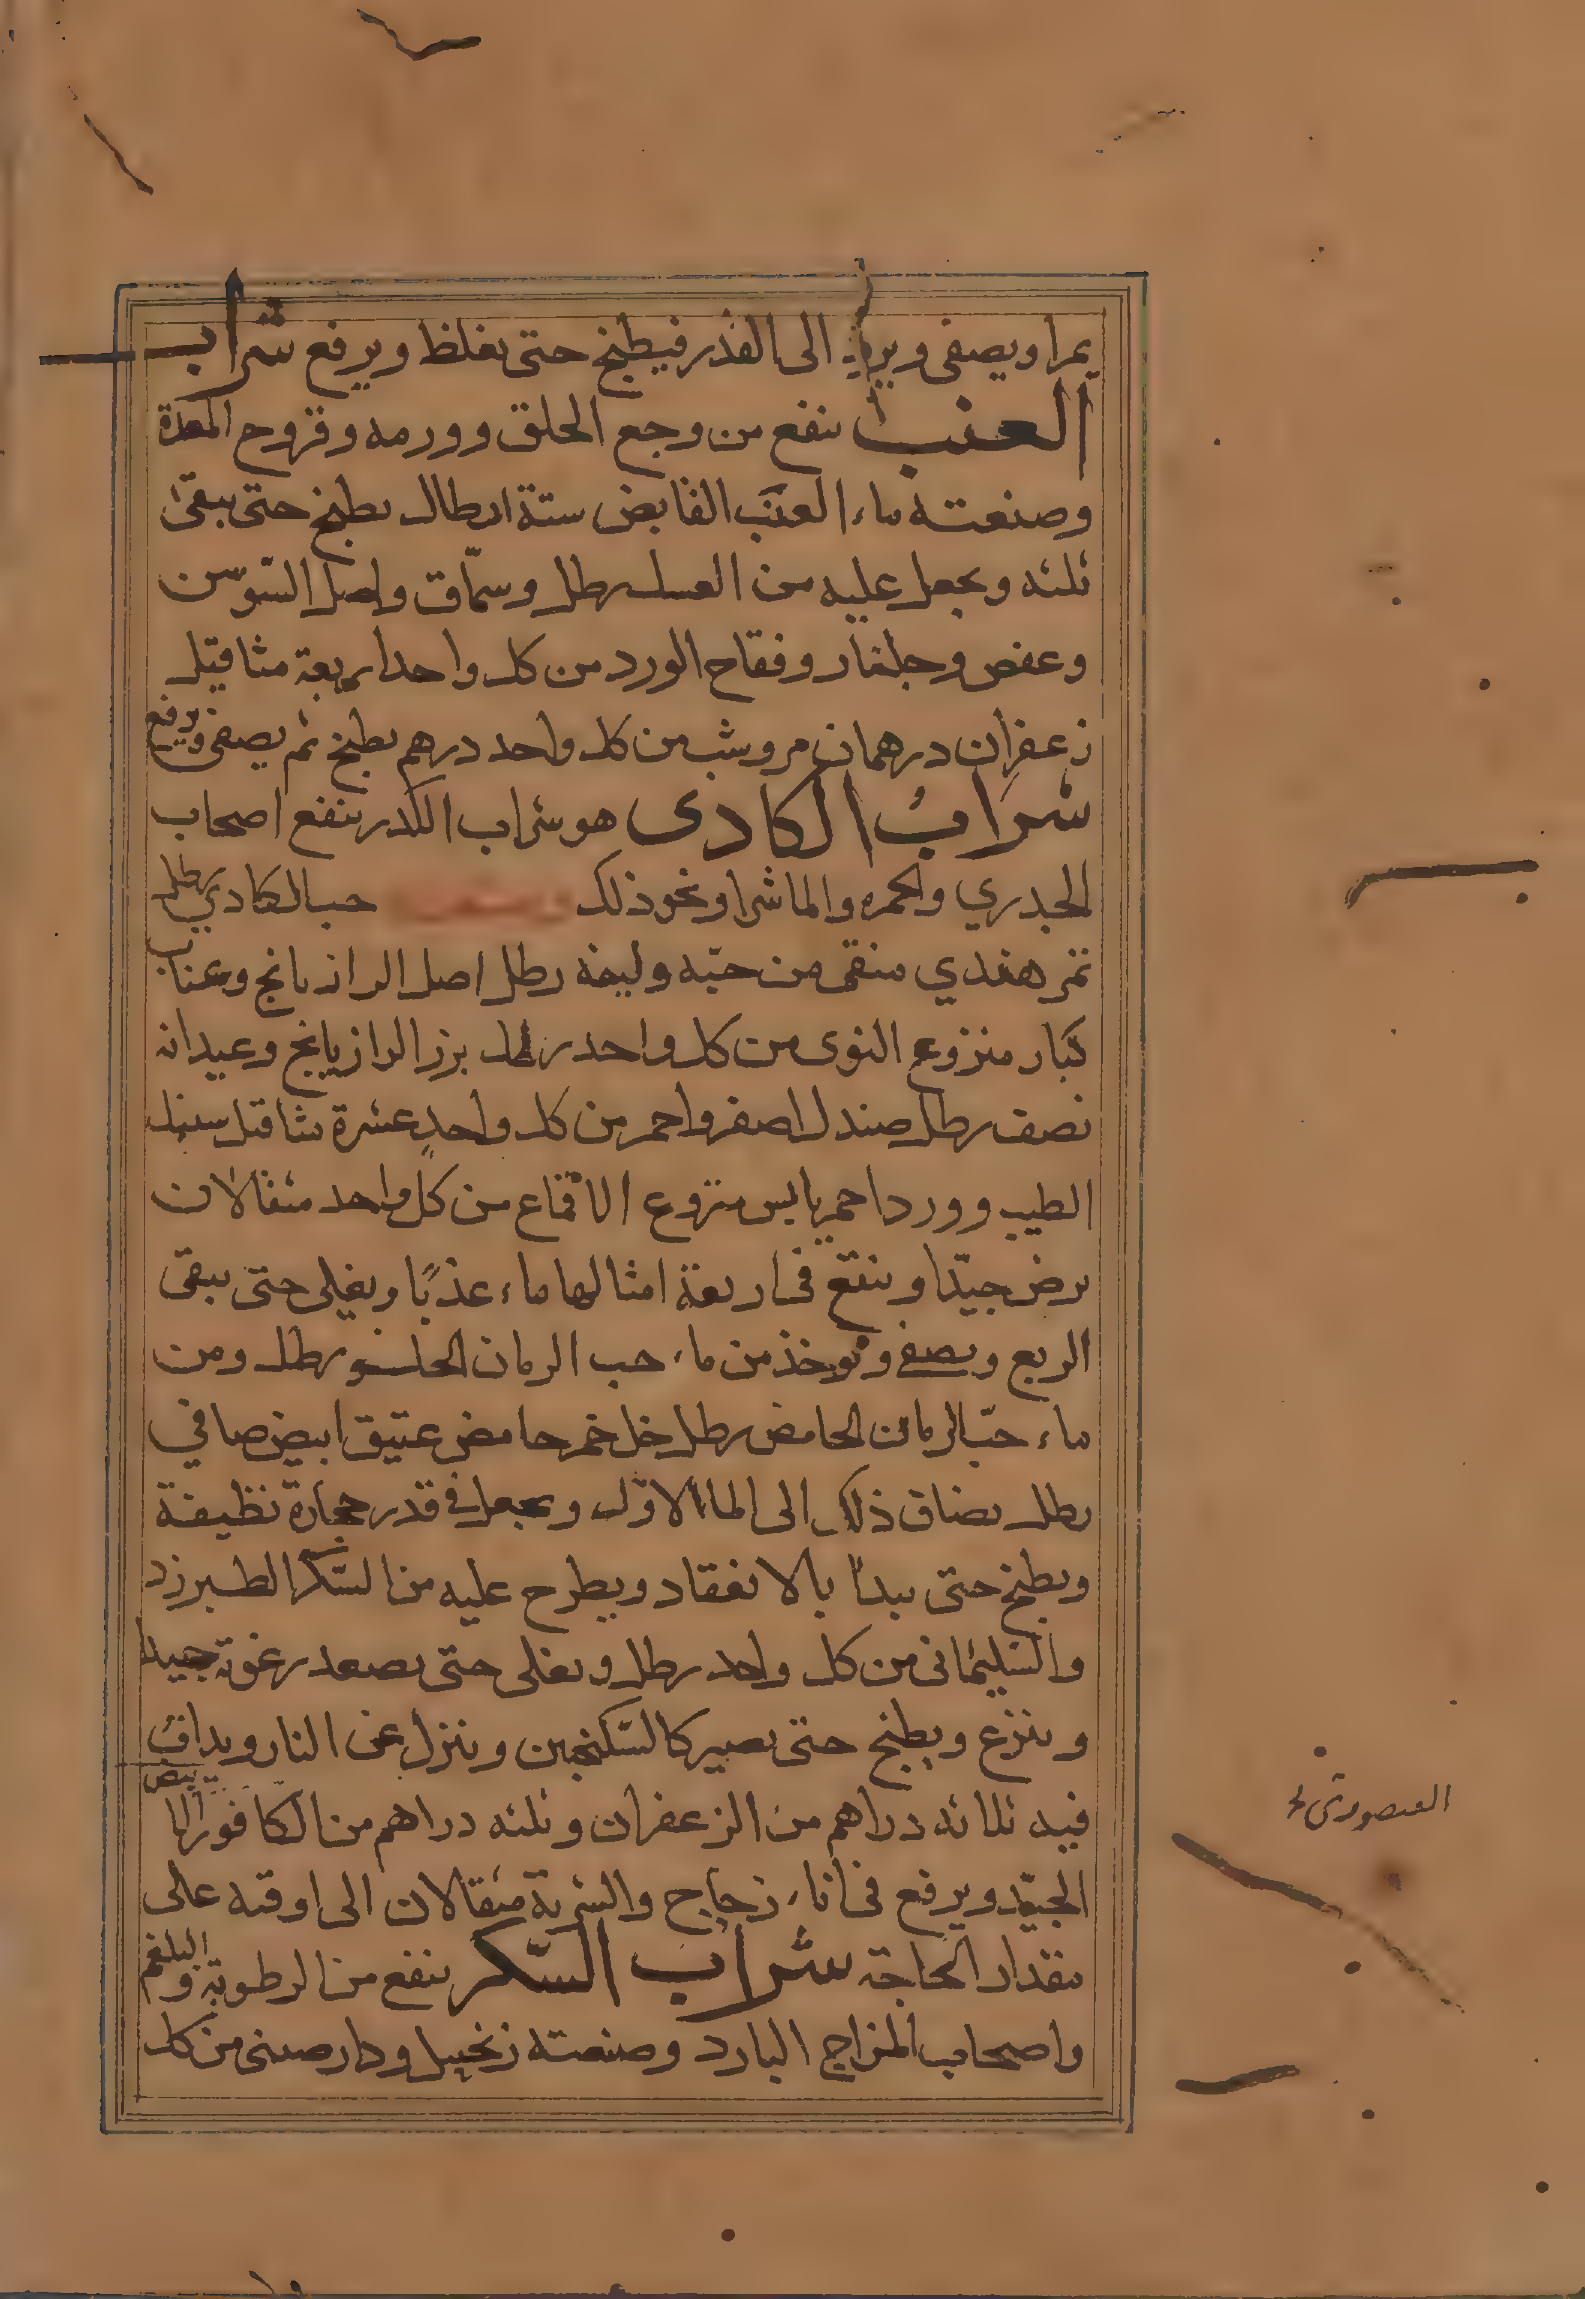 يمرا ويصفى ويرد الى القدر فيطبخ حتى يغلظ ويرفع شراب
العنب ينفع من وجع الحلق وورمه وقروح المعدة
وصنعته ماء العنب القابض ستة ارطال يطبخ حتى يبقى
ثلثه ويجعل عليه من العسل رطل وسمّاق واصل السّوسن
وعفص وجلنار وفقاح الورد من كل واحد اربعة مثاقيل
زعفران درهمان مر وشب من كل واحد درهم يطبخ ثم يصفى ويرفع
شرابُ الكادى هو شراب الكدر ينفع اصحاب
الجدري والحمره والماشرا ونحو ذلك وصنعته حب الكادي رطل
تمر هندي منقى من حبّه وليفه رطل اصل الرازيانج وعناب
كبار منزوع النوى من كل واحد رطل بزر الرازيانج وعيدانه
نصف رطل صندل اصفر واحمر من كل واحدٍ عشرة مثاقيل سنبل
الطيب وورد احمر يابس منزوع الاقماع من كل واحد مثقالان
يرض جيّدا وينقع فى اربعة امثالها ماء عذبًا ويغلى حتى يبقى
الربع ويصفى ويوخذ من ماء حب الرمان الحلو رطل ومن
ماء حبّ الرمان الحامض رطل خل خمر حامض عتيق ابيض صافي
رطل يضاف ذلك الى الماا الاوّل ويجعل في قدر حجارة نظيفة
ويطبخ حتى يبدأ بالانعقاد ويطرح عليه من السّكر الطبرزد
والسّليمانى من كل واحد رطل ويغلى حتى يصعد رغوته جيدا
وينزع ويطبخ حتى يصير كالسّكنجبين وينزل عن النار ويداف
فيه ثلاثه دراهم من الزعفران وثلثه دراهم من الكافور الابيض
الجيّد ويرفع فى اناء زجاج والشربة مثقالان الى اوقيه على
مقدار الحاجة شراب السّكر ينفع من الرطوبة والبلغم
واصحاب المزاج البارد وصنعته زنجبيل ودارصينى من كل